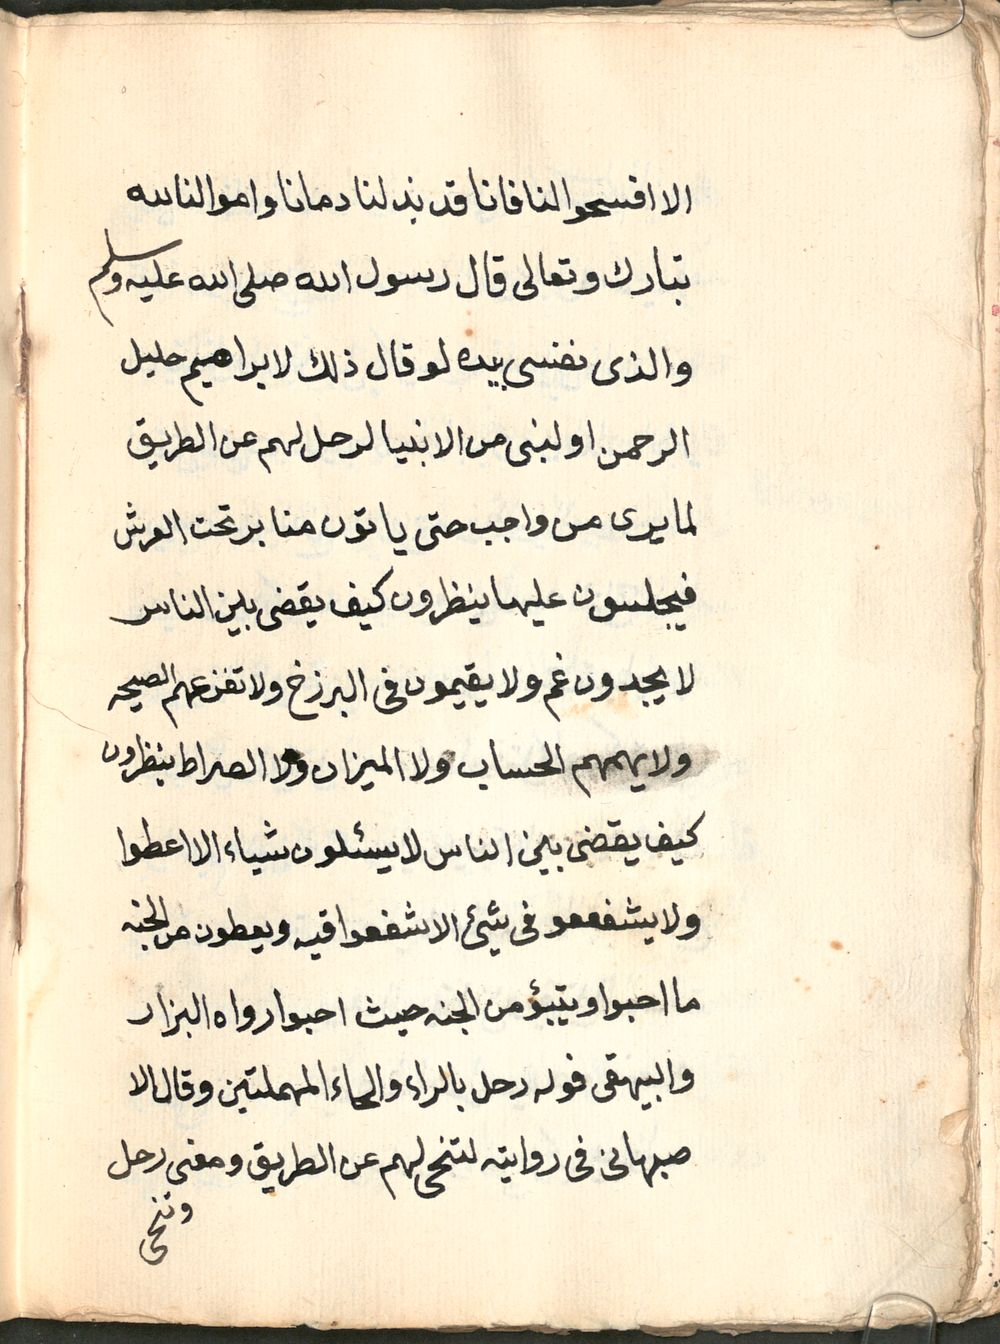 الا افسحوا لنا فانا قد بذلنا دمانا واموالنا لله
تبارك وتعالى قال رسول الله صلى الله عليه وسلم
والذى نفسى بيده لو قال ذلك لابراهيم خليل
الرحمن او لنبى من الانبيا لرحل لهم عن الطريق
لما يرى من واجب حتى ياتون منابر تحت العرش
فيجلسون عليها ينظرون كيف يقضى بين الناس
لا يجدون غم ولا يقيمون فى البرزخ ولا تفزعهم الصيحه
ولا يهمهم الحساب ولا الميزان ولا الصراط ينظرون
كيف يقضى بين الناس لا يسئلون شياء الا اعطوا
ولا يشفععو فى شيئ الا شفعوا فيه ويعطون من الجنه
ما احبوا ويتبؤ من الجنه حيث احبوا رواه البزار
والبيهقى قوله رحل بالراء والحاء المهملتين وقال الا
صبهانى فى روايته لتنحى لهم عن الطريق ومعنى رحل
وتنحى